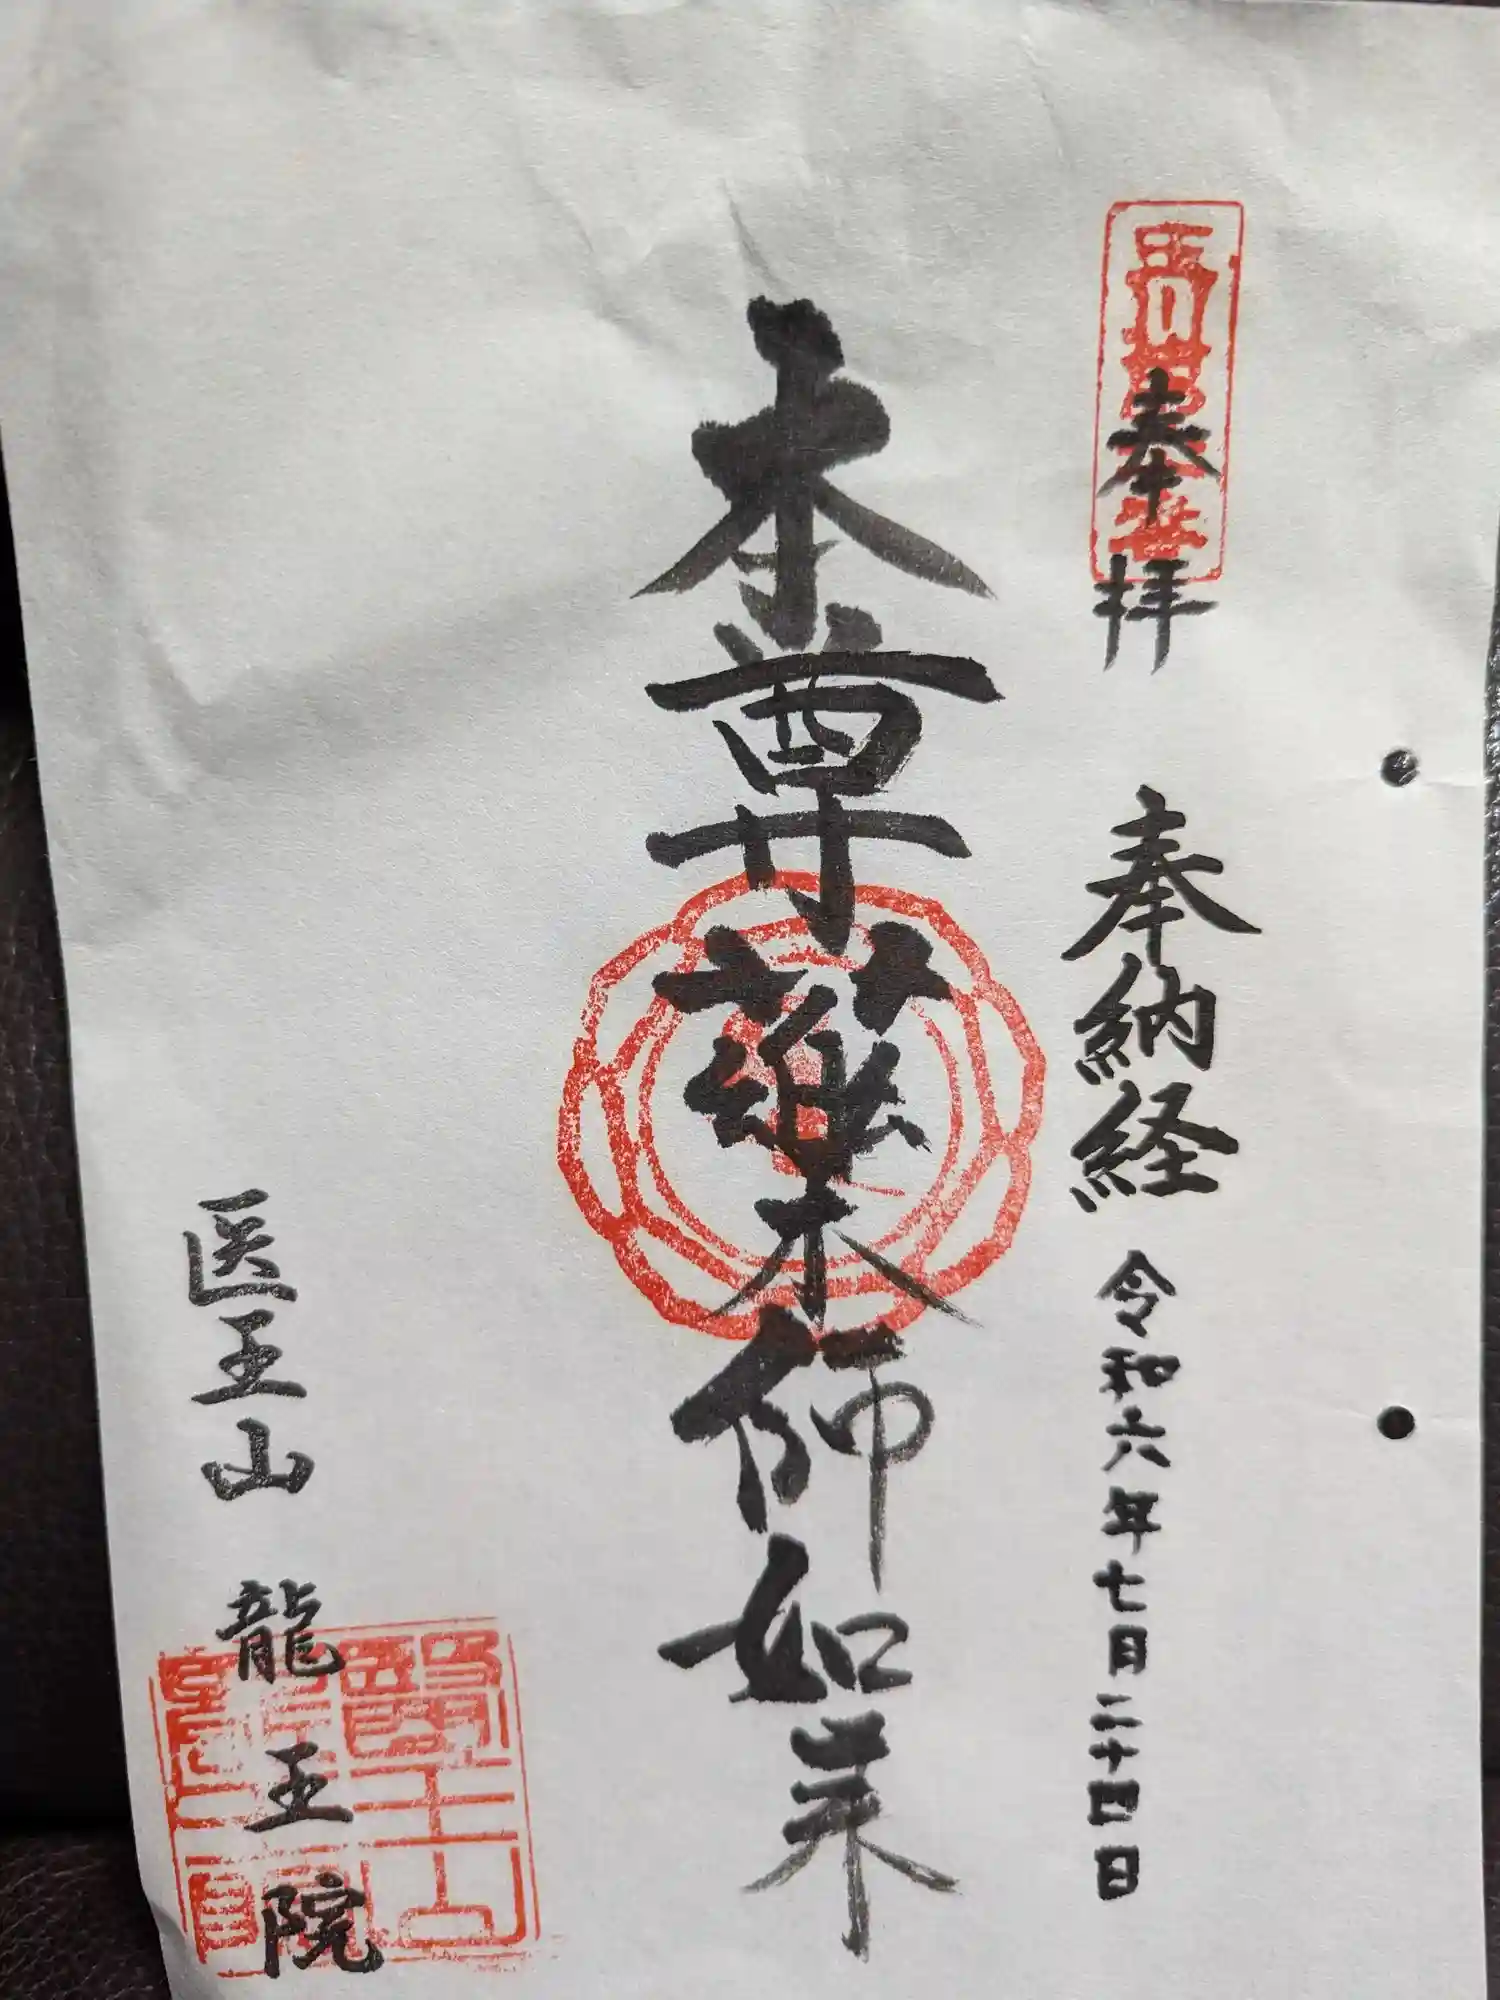 奉拝
奉納経 令和六年七月二十四日
本尊薬師如来
医王山 龍王院